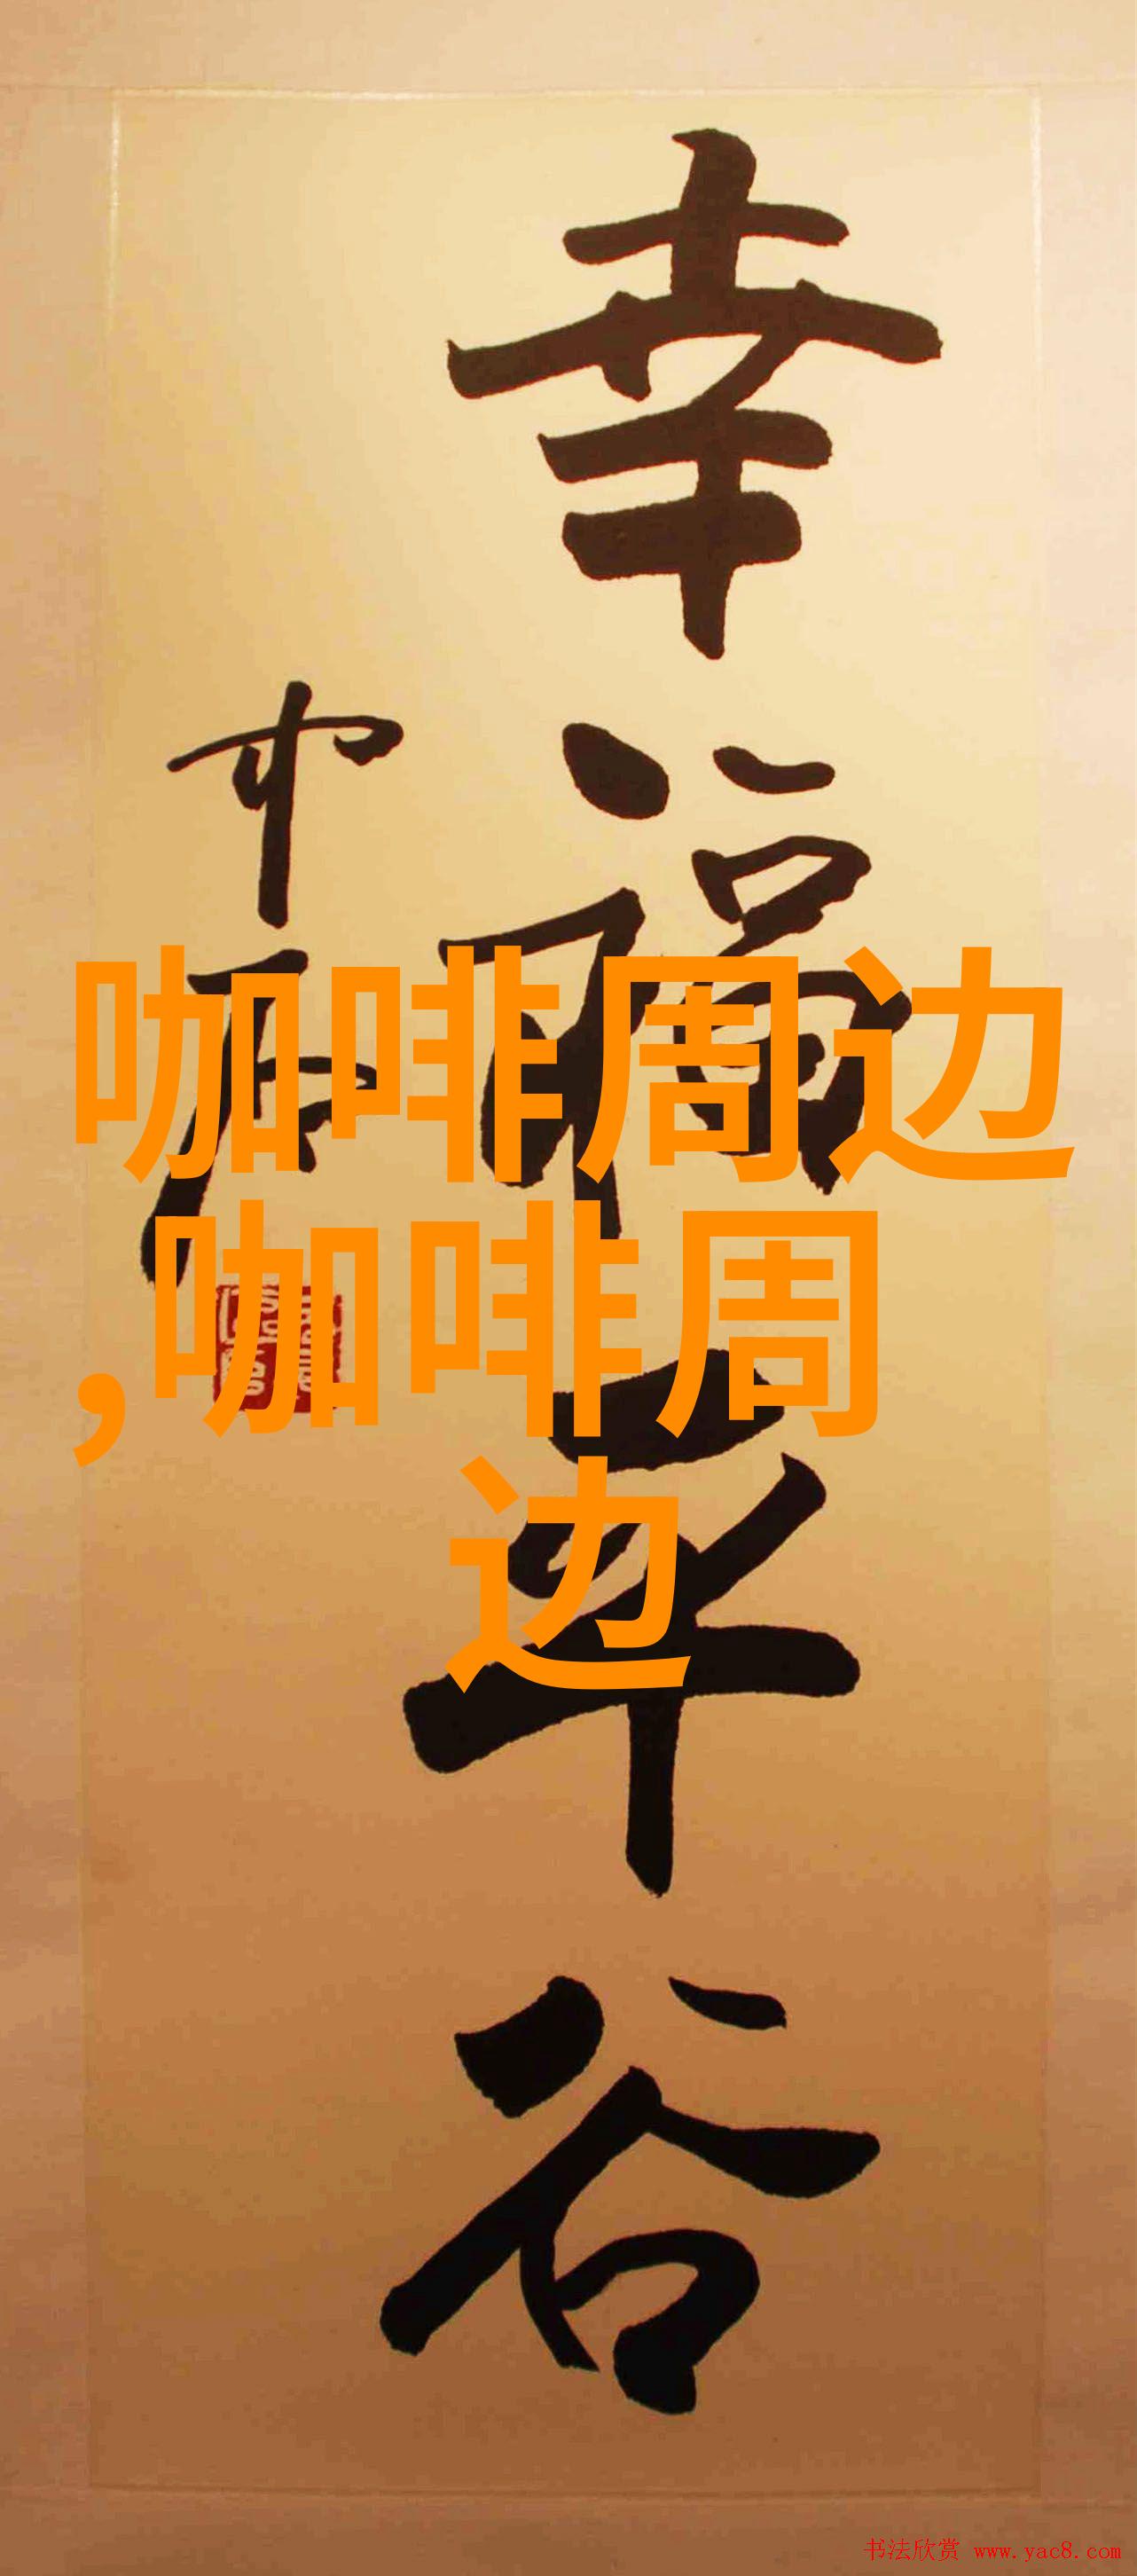 幸福平谷
中石
咖啡周边
,咖啡周
边
书法欣赏 www.yac8.com